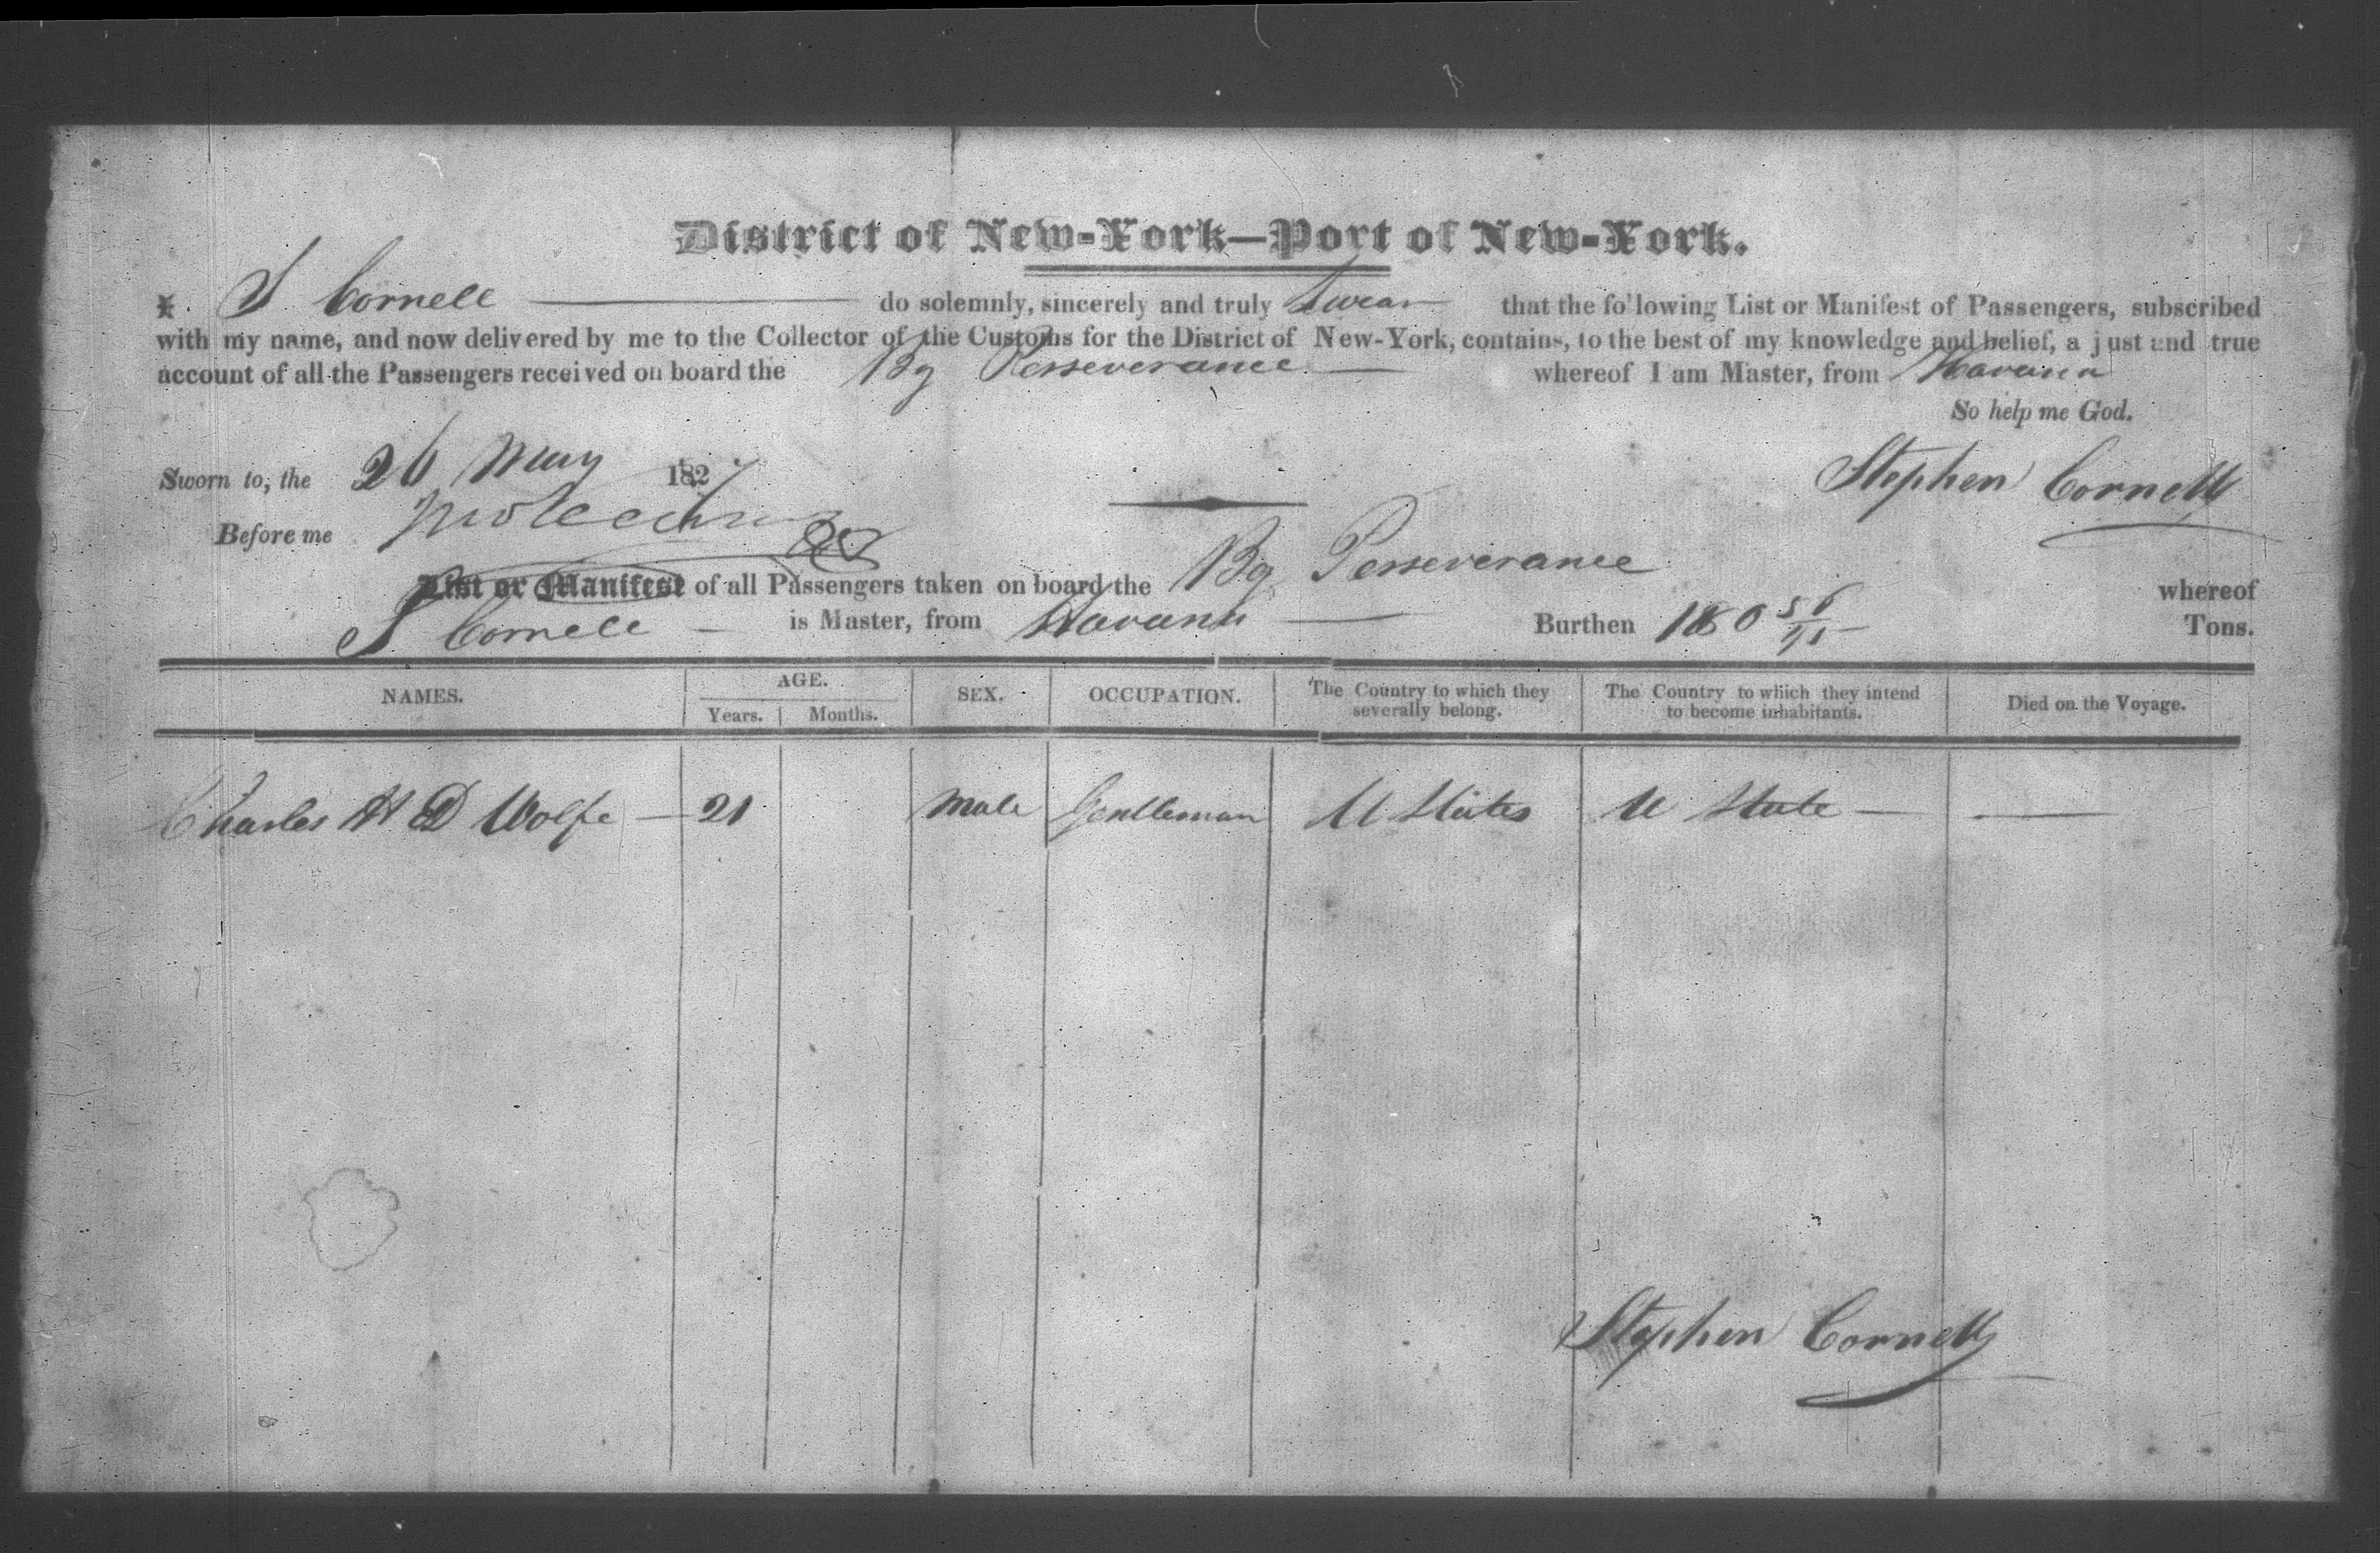 District of New-York—Port of New-York.
I. S Cornell do solemnly, sincerely and truly Swear that the following List or Manifest of Passengers, subscribed
with my name, and now delivered by me to the Collector of the Customs for the District of New-York, contains, to the best of my knowledge and belief, a just and true
account of all the Passengers received on board the Bg Perseverance whereof I am Master, from Havana
So help me God.
Sworn to, the 26 May 1827
Stephen Cornell
Before me
List or Manifest of all Passengers taken on board the Bg Perseverance whereof
S Cornell is Master, from Havana Burthen 180 56/95 Tons.
NAMES. AGE. Years. Months. SEX. OCCUPATION. The Country to which they severally belong. The Country to which they intend to become inhabitants. Died on the Voyage.
Charles H D Wolfe — 21 Male Gentleman U States U State — —
Stephen Cornell